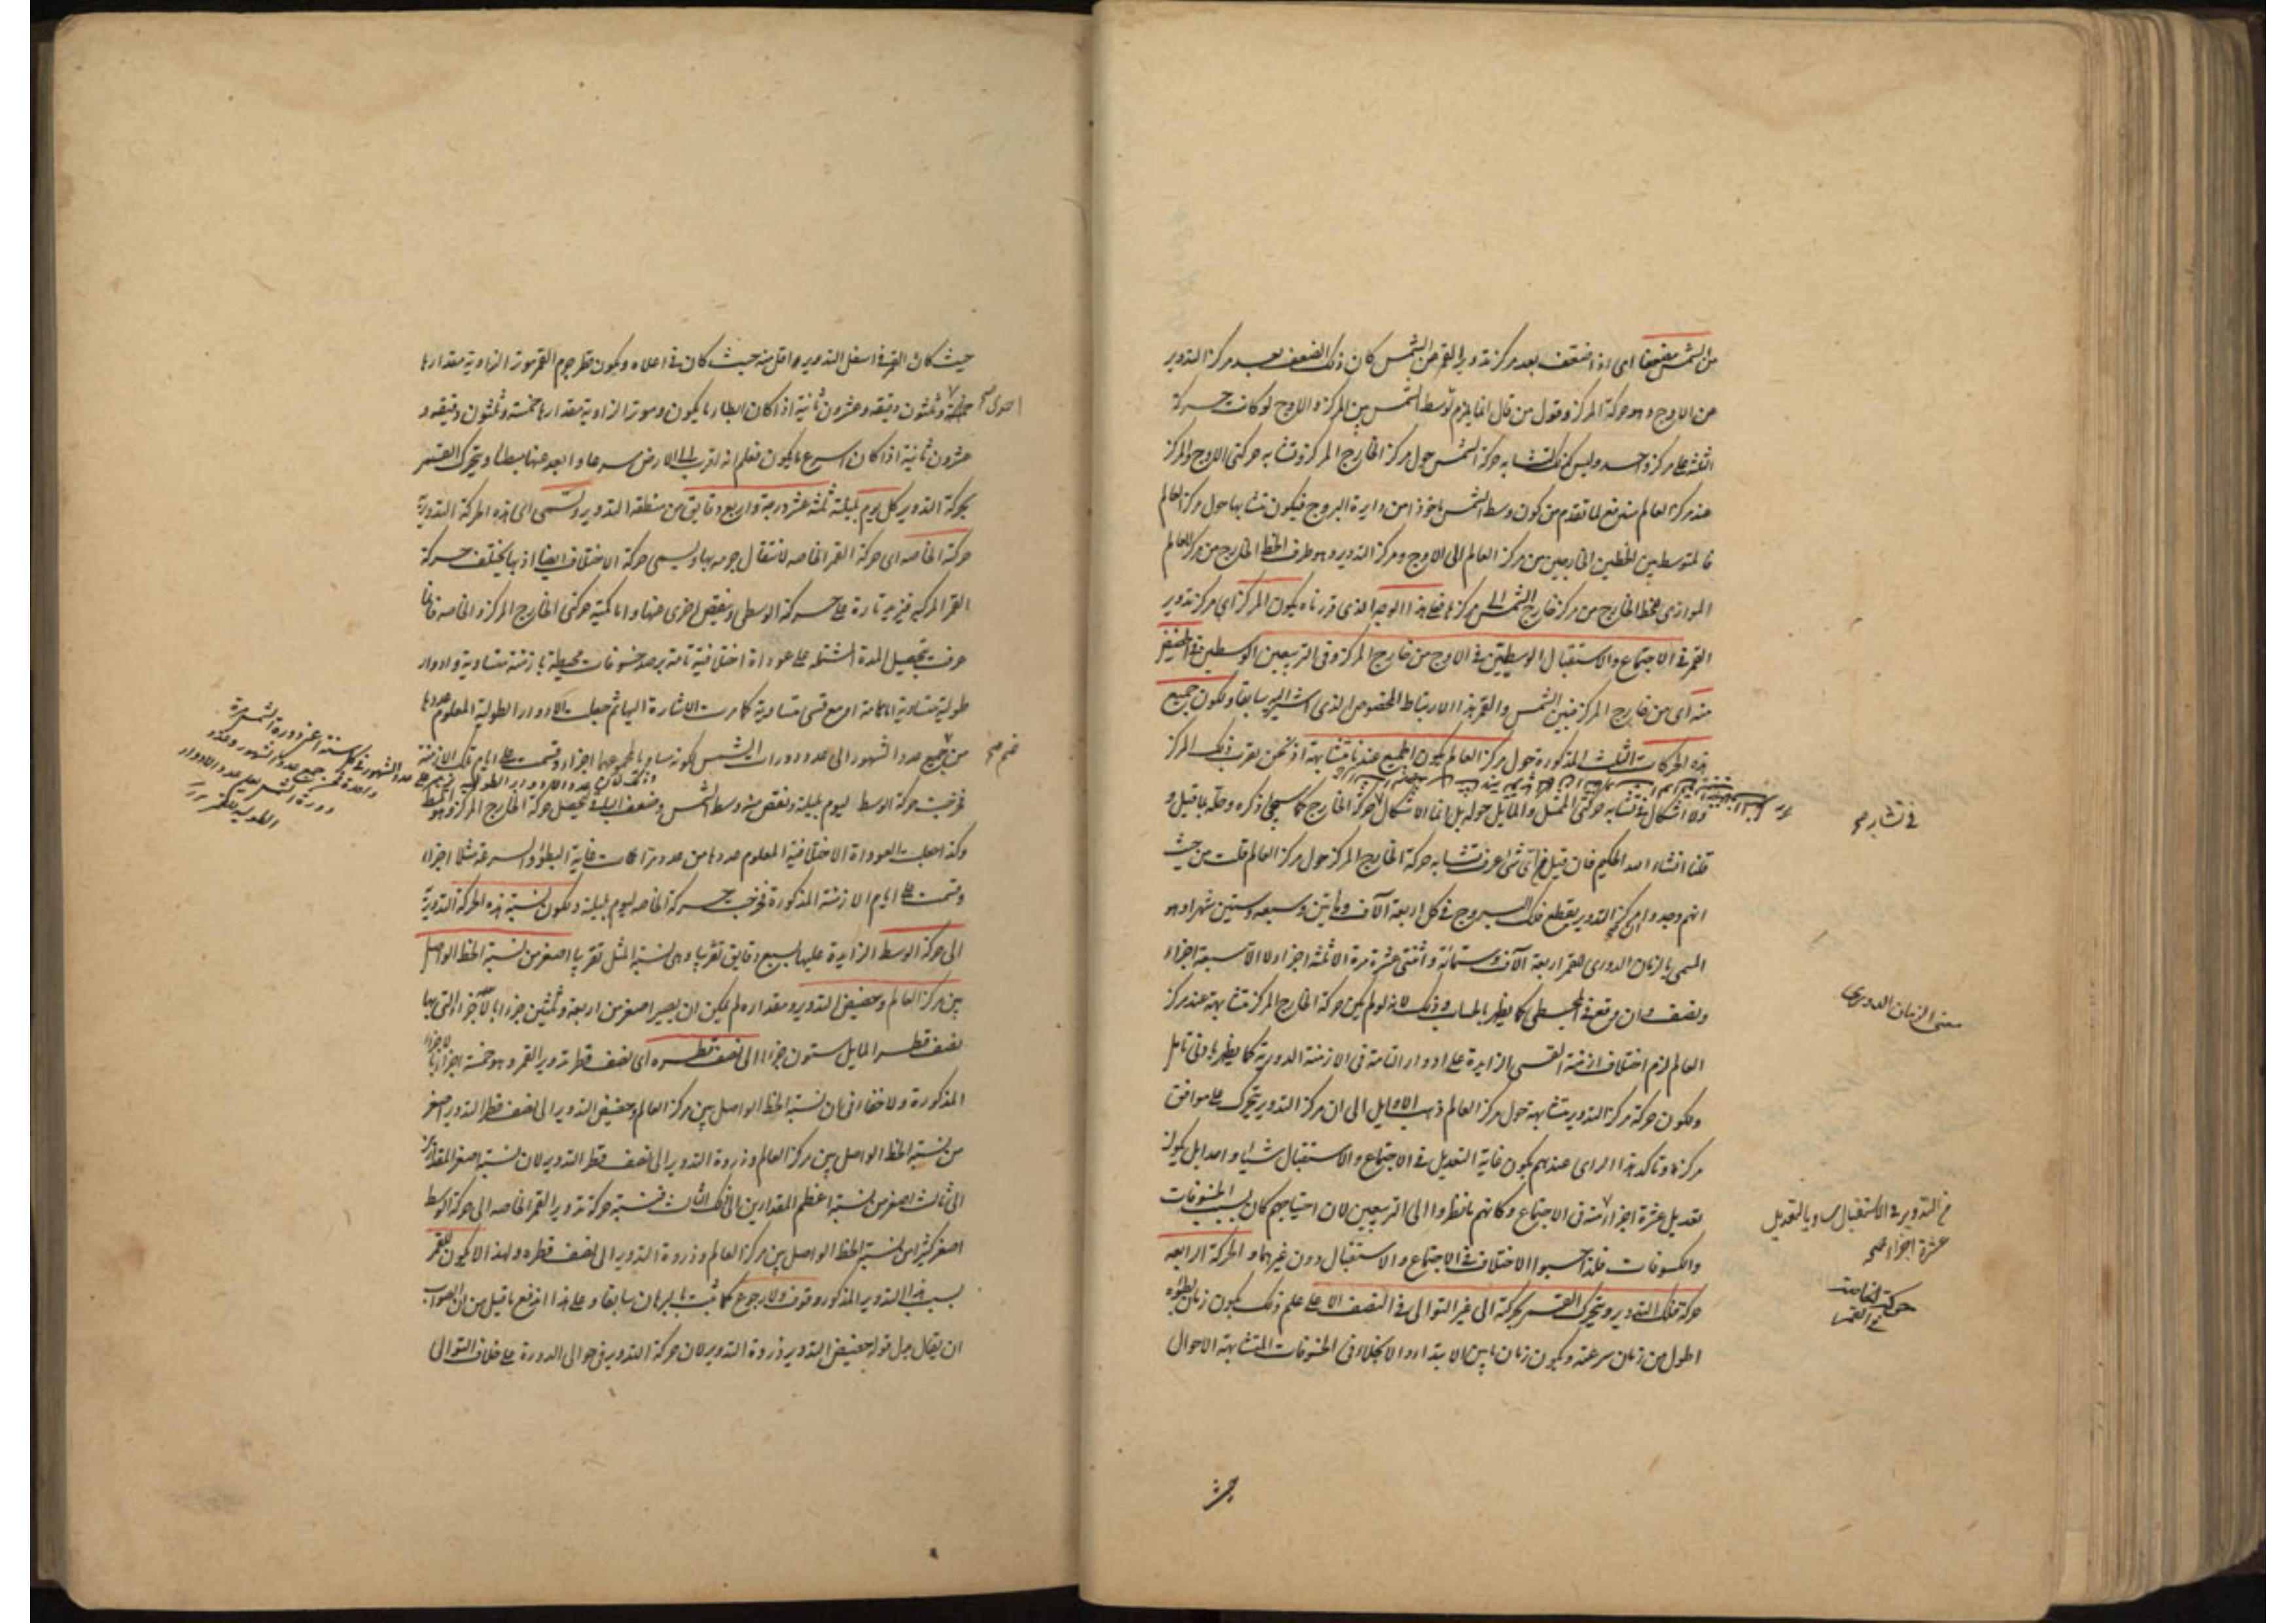 من الشمس مضعفا اى اذا ضعف بعد مركز تدوير القمر من الشمس كان ذلك الضعف بعد مركز التدوير
عن الاوج وهو حركة المركز وقول من قال انما يلزم توسط الشمس بين المركز والاوج لو كانت حركة
الثلثة على مركز واحد وليس كذلك لتشابه حركة الشمس حول مركز الخارج المركز وتشابه حركتى الاوج والمركز
عند مركز العالم مندفع لما تقدم من كون وسط الشمس ماخوذا من دايرة البروج فيكون تشابهها حول مركز العالم
فالمتوسط بين الخطين الخارجين من مركز العالم الى الاوج ومركز التدوير وهو طرف الخط الخارج من مركز العالم
الموازى للخط الخارج من مركز خارج الشمس الى مركزها فعلى هذا الوجه الذى قررناه يكون المركز اى مركز تدوير
القمر فى الاجتماع والاستقبال الوسطيين فى الاوج من خارج المركز وفى التربيعين الوسطين فى الحضيض
منه اى من خارج المركز فبين الشمس والقمر هذا الارتباط المخصوص الذى اشير اليه سابقا ويكون جميع
هذه الحركات الثلث المذكورة حول مركز العالم يكون الجميع عندنا متشابهة اذ نحن بقرب ذلك المركز
ولا اشكال فى تشابه حركتى الممثل والمايل حوله بل انما الاشكال حركة الخارج كما سيجئ ذكره وحله بما قيل و
فى تشابه صح
قلنا انشاء الله الحكيم فان قيل من اى شئ عرف تشابه حركة الخارج المركز حول مركز العالم قلت من حيث
انهم وجدوا مركز التدوير يقطع فلك البروج فى كل اربعة آلاف وماتين وسبعة وستين شهرا وهو
المسمى بالزمان الدورى للقمر اربعة آلاف وستمائة واثنتى عشرة مرة الا ثلثة اجزاء لا الا سبعة اجزاء
ونصف وان وقع فى المجسطى كما يظهر بالحساب وذلك لانه لو لم يكن حركة الخارج المركز متشابهة عند مركز
معنى الزمان الدورى
العالم لزم اختلاف ازمنة القسى الزايدة على ادوار التامة فى الازمنة الدورية كما يظهر بادنى تامل
ولكون حركة مركز التدوير متشابهة حول مركز العالم ذهب الاوايل الى ان مركز التدوير يتحرك على موافق
مركزه وتاكد هذا الراى عندهم بكون غاية التعديل فى الاجتماع والاستقبال شيئا واحدا بل يكون
تعديل عشرة اجزاء منه فى الاجتماع وكانهم ما نظروا الى التربيعين لان احتياجهم كان بسبب الخسوفات
من التدوير فى الاستقبال مساويا لتعديل
عشرة اجزاء صح
والكسوفات فلذا حسبوا الاختلاف فى الاجتماع والاستقبال دون غيرهما والحركة الرابعة
حركة فلك التدوير ويتحرك القمر بحركته الى غير التوالى فى النصف الاعلى علم ذلك بكون زمان بطوئه
حركة الخاصة
فى القمر
اطول من زمان سرعته وبكون زمان ما بين الابتداء والانجلاء فى الخسوفات المتشابهة الاحوال
حيث
حيث كان القمر فى اسفل التدوير اقل منه حيث كان فى اعلاه وبكون قطر جرم القمر موتر الزاوية مقدارها
احدى صح
خمسة وثلثون دقيقة وعشرون ثانية اذا كان ابطا ما يكون وموتر الزاوية مقدارها خمسة وثلثون دقيقة و
عشرون ثانية اذا كان اسرع ما يكون فعلم انه اقرب الى الارض سريعا وابعد عنها بطيئا ويتحرك القمر
بحركة التدوير كل يوم بليلته ثلثة عشر درجة واربع دقايق من منطقة التدوير وتسمى اى هذه الحركة التدويرية
حركة الخاصة اى حركة القمر الخاصة لانتقال جرمه بها ويسمى حركة الاختلاف ايضا اذ بها يختلف حركة
القمر المركبة فتزيد تارة على حركة الوسطى وينقص اخرى عنها واما كمية حركتى الخارج المركز والخاصة فانما
عرفت بتحصيل المدة المشتملة على عودات اختلافية تامة برصد خسوفات محيطة بازمنة متساوية وادوار
طولية متساوية اما تامة او مع قسى متساوية كما مرت الاشارة اليها ثم جعلت الادوار الطولية المعلوم عددها
من جميع عدد الشهور الى عدد دورات الشمس لكونه مساويا لمجموعهما اجزاء وقسمت على ايام تلك الازمنة
فخرجت حركة الوسط ليوم بليلته ونقص منه وسط الشمس وضعف الباقى فحصل حركة الخارج المركز وهو الوسط
وكذا جعلت العودات الاختلافية المعلوم عددها من عدد مرات غاية البطؤ والسرعة مثلا اجزاء
وقسمت على ايام الازمنة المذكورة فخرجت حركة الخاصة ليوم بليلته ويكون نسبة هذه الحركة التدويرية
الى حركة الوسط الزايدة عليها بسبع دقايق تقريبا وهى نسبة المثل تقريبا اصغر من نسبة الخط الواصل
بين مركز العالم وحضيض التدوير ومقداره لم يمكن ان يصير اصغر من اربعة وثلثين جزءا بالاجزاء التى بها
نصف قطر المايل ستون جزءا الى نصف قطره اى نصف قطر تدوير القمر وهو خمسة اجزاء بالاجزاء
المذكورة ولا خفاء فى ان نسبة الخط الواصل بين مركز العالم وحضيض التدوير الى نصف قطر التدوير اصغر
من نسبة الخط الواصل بين مركز العالم وذروة التدوير الى نصف قطر التدوير لان نسبة اصغر المقدارين
الى ثالث اصغر من نسبة اعظم المقدارين الى ذلك الثالث فنسبة حركة تدوير القمر الخاصة الى حركة الوسط
اصغر كثيرا من نسبة الخط الواصل بين مركز العالم وذروة التدوير الى نصف قطره ولهذا لا يكون للقمر
بسبب هذا التدوير المذكور وقوف ولا رجوع كما ثبت بالبرهان سابقا وعلى هذا اندفع ما قيل من ان الصواب
ان يقال بدل قوله حضيض التدوير ذروة التدوير لان حركة التدوير فى حوالى الذروة على خلاف التوالى